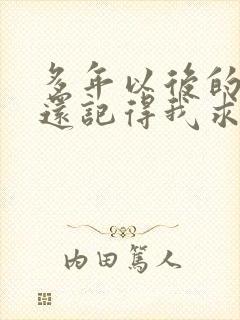 多年以後的
還記得我求
内田篤人